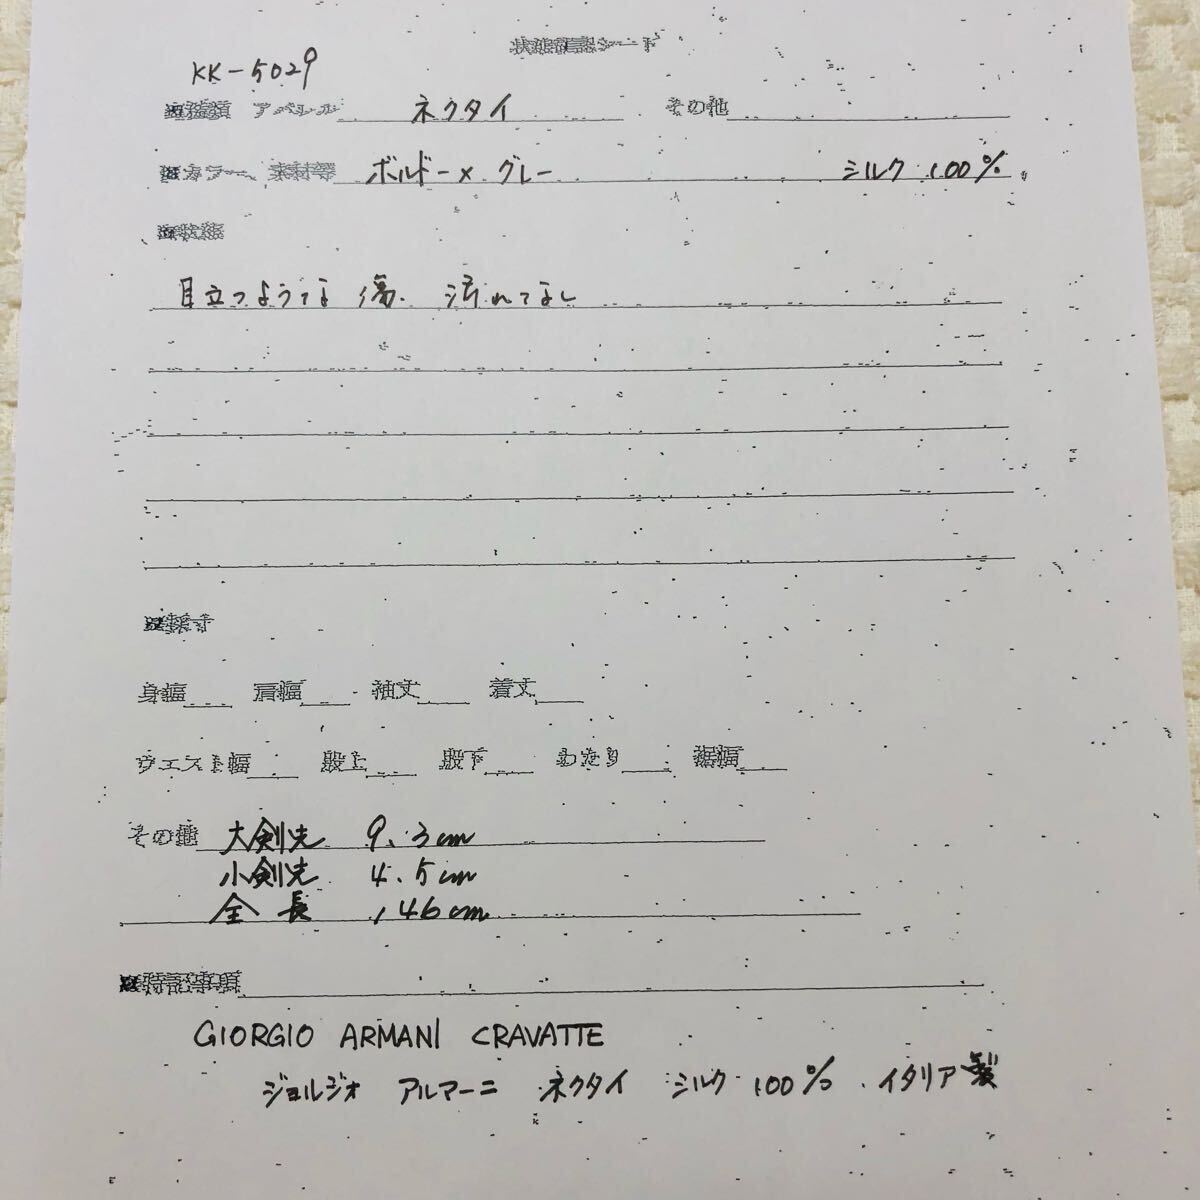 状態確認シート
KK-5029
種類 アパレル ネクタイ その他
カラー、素材等 ボルドー× グレー シルク 100%
状態
目立つような 傷、汚れてなし
採寸
身幅 肩幅 袖丈 着丈
ウエスト幅 股上 股下 わたり 裾幅
その他 大剣先 9.3cm
小剣先 4.5cm
全長 146cm
特記事項
GIORGIO ARMANI CRAVATTE
ジョルジオ アルマーニ ネクタイ シルク 100%、イタリア製